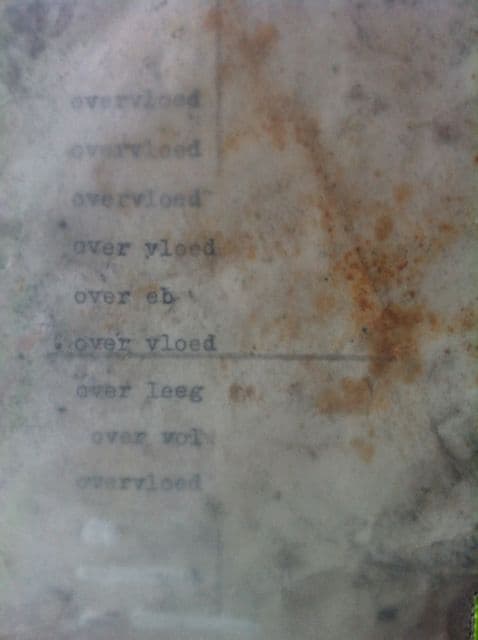 overvloed
overvloed
overvloed
over vloed
over eb
over vloed
over leeg
over vol
overvloed